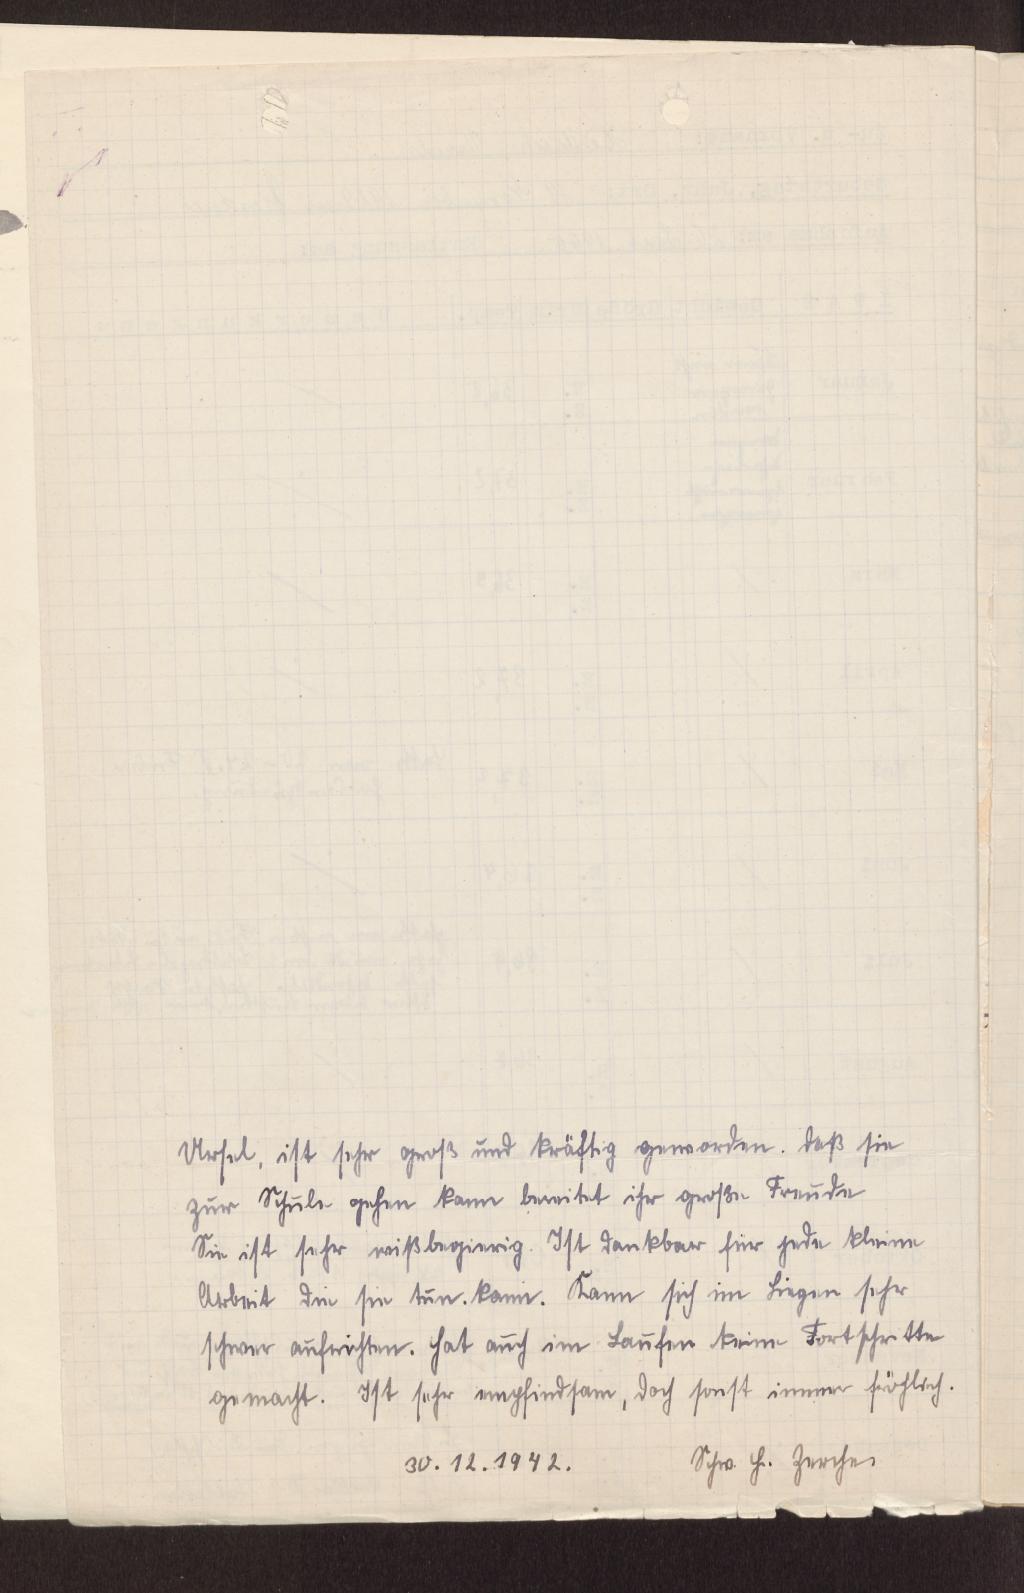 Ursel, ist sehr groß und kräftig geworden. daß sie
zur Schule gehen kann bereitet ihr große Freude
Sie ist sehr wißbegierig. Ist dankbar für jede kleine
Arbeit die sie tun. kann. Kann sich im Liegen sehr
schwer aufrichten. Hat auch im Laufen keine Fortschritte
gemacht. Ist sehr empfindsam, doch sonst immer fröhlich.
30.12.1942. Schw. H. Zerche